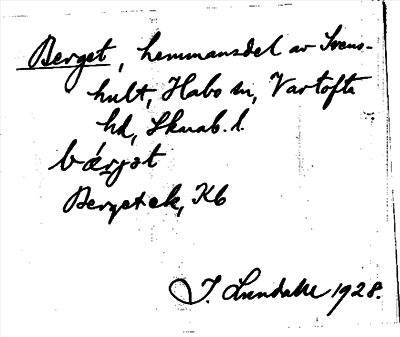 Berget, hemmansdel av Svens-
hult, Habo sn, Vartofta
hd, Skarab. l.
bærjət
Berget ek, Kb
I. Lundahl 1928.